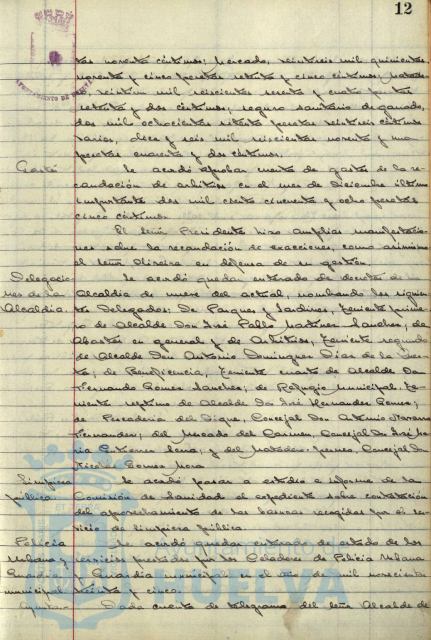 12
tas noventa céntimos; Mercado, veintiseis mil quinientas
noventa y cinco pesetas setenta y cinco céntimos; Matade-
ro, veintiun mil seiscientas sesenta y cuatro pesetas
setenta y dos céntimos; seguro sanitario de ganado,
dos mil ochocientas setenta pesetas veintiseis céntimos
varios, diez y seis mil seiscientas noventa y una
pesetas cuarenta y dos céntimos.
Gastó Se acordó aprobar cuenta de gastos de la re-
caudación de arbitrios en el mes de Diciembre último
importante dos mil ciento cincuenta y ocho pesetas
cinco céntimos.
El Señor Presidente hizo amplias manifestacio-
nes sobre la recaudación de exacciones, como asimismo
el Señor Oliveira en defensa de su gestión.
Delegacio- Se acordó quedar enterado de decreto de la
nes de la Alcaldía de nueve del actual, nombrando los siguien-
Alcaldía. tes Delegados: De Parques y Jardines, Teniente prime-
ro de Alcalde Don José Pablo Martinez Sanchez; de
Abastos en general y de Arbitrios, Teniente segundo
de Alcalde Don Antonio Dominguez Diaz de la
de Beneficencia, Teniente cuarto de Alcalde Don
Fernando Gomez Sanchez; de Refugio Municipal, Te-
niente septimo de Alcalde Don José Hernandez Gomez;
de Pescaderia del Dique, Concejal Don Antonio Navarro
Fernandez; del Mercado del Carmen, Concejal Don José Ma-
ria Gutierrez; y del Matadero, Concejal Don
Nicolas Gomez Mora
Limpieza Se acordó pasar a estudio e informe de la
pública Comisión de Sanidad el expediente sobre contratación
del aprovechamiento de las basuras recogidas por el ser-
vicio de limpieza pública.
Policía Se acordó quedar enterado de estado de los
Urbana y servicios prestados por los Celadores de Policía Urbana
Guardia y Guardia municipal en el año de mil novecientos
municipal. treinta y cinco.
Dada cuenta de telegrama del Señor Alcalde de
Ayuntamiento de
HUELVA